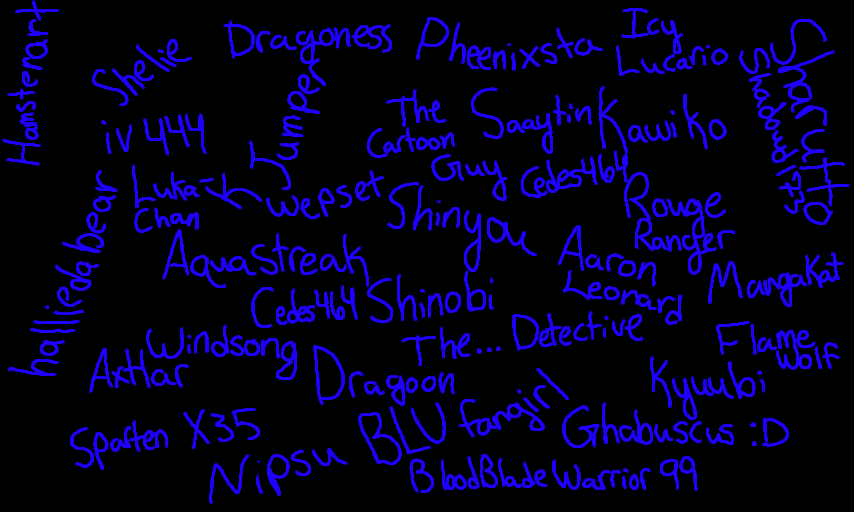 Hamstenart
Shelie
Dragoness
Pheenixsta
Icy
Lucario
Sharutto
iv 444
Jumper
The
Cartoon
Guy
Saaytin
Kawiko
Cedes464
Luka-
Chan
wepset
Shinyou
Rouge
Ranger
halliedabear
AquaStreak
Aaron
Leonard
MangaKat
Cedes464
Shinobi
Windsong
The... Detective
Flame
Wolf
Axtlar
Dragoon
Kyuubi
Sparten X35
BLU fangirl
Ghabuscus :D
Nipsu
BloodBladeWarrior 99